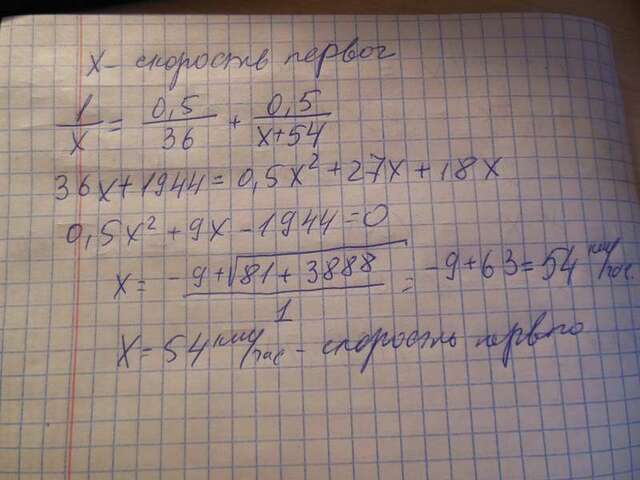 x - скорость первог
1/x = 0,5/36 + 0,5/(x+54)
36x+1944 = 0,5x² + 27x + 18x
0,5x² + 9x - 1944 = 0
x = (-9+√(81+3888))/1 = -9+63 = 54 км/час
x = 54 км/час - скорость первого